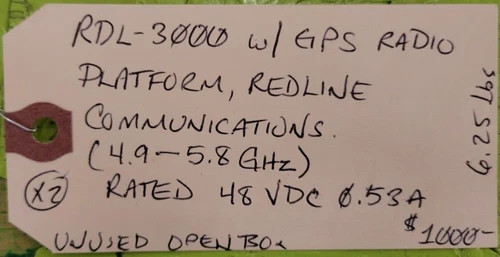 RDL-3000 w/ GPS RADIO
PLATFORM, REDLINE
COMMUNICATIONS.
(4.9-5.8 GHz)
X2
RATED 48 VDC 0.53A
$1000-
UNUSED OPEN BOX
6.25 Lbs